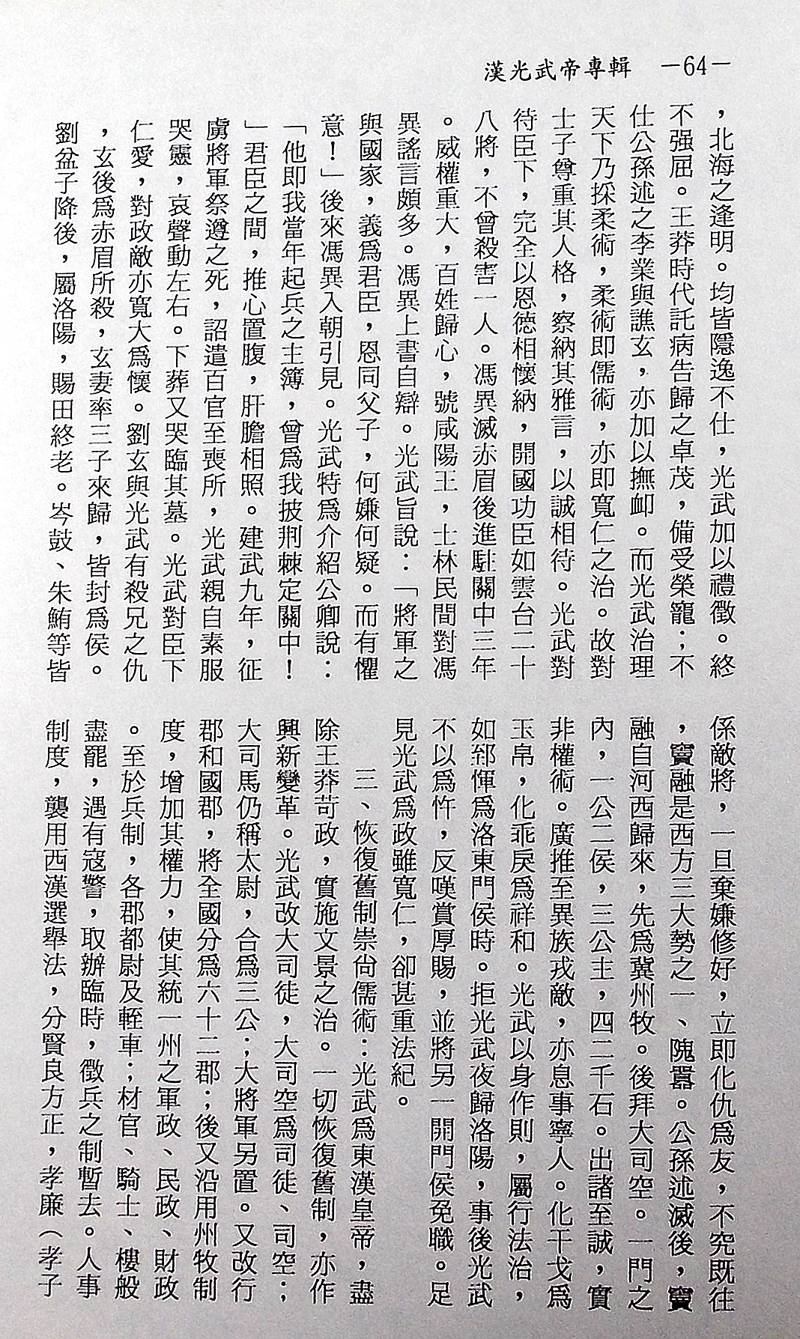 漢光武帝專輯 －64－
，北海之逢明。均皆隱逸不仕，光武加以禮徵。終
不强屈。王莽時代託病告歸之卓茂，備受榮寵；不
仕公孫述之李業與譙玄，亦加以撫卹。而光武治理
天下乃採柔術，柔術即儒術，亦即寬仁之治。故對
士子尊重其人格，察納其雅言，以誠相待。光武對
待臣下，完全以恩德相懷納，開國功臣如雲台二十
八將，不曾殺害一人。馮異滅赤眉後進駐關中三年
。威權重大，百姓歸心，號咸陽王，士林民間對馮
異謠言頗多。馮異上書自辯。光武旨說：「將軍之
與國家，義爲君臣，恩同父子，何嫌何疑。而有懼
意！」後來馮異入朝引見。光武特爲介紹公卿說：
「他即我當年起兵之主簿，曾爲我披荆棘定關中！
」君臣之間，推心置腹，肝膽相照。建武九年，征
虜將軍祭遵之死，詔遣百官至喪所，光武親自素服
哭靈，哀聲動左右。下葬又哭臨其墓。光武對臣下
仁愛，對政敵亦寬大爲懷。劉玄與光武有殺兄之仇
，玄後爲赤眉所殺，玄妻率三子來歸，皆封爲侯。
劉盆子降後，屬洛陽，賜田終老。岑鼓、朱鮪等皆
係敵將，一旦棄嫌修好，立即化仇爲友，不究既往
，竇融是西方三大勢之一、隗囂。公孫述滅後，竇
融自河西歸來，先爲冀州牧。後拜大司空。一門之
內，一公二侯，三公主，四二千石。出諸至誠，實
非權術。廣推至異族戎敵，亦息事寧人。化干戈爲
玉帛，化乖戾爲祥和。光武以身作則，屬行法治，
如郅惲爲洛東門侯時。拒光武夜歸洛陽，事後光武
不以爲忤，反嘆賞厚賜，並將另一開門侯免職。足
見光武爲政雖寬仁，卻甚重法紀。
三、恢復舊制崇尙儒術：光武爲東漢皇帝，盡
除王莽苛政，實施文景之治。一切恢復舊制，亦作
興新變革。光武改大司徒，大司空爲司徒、司空；
大司馬仍稱太尉，合爲三公；大將軍另置。又改行
郡和國郡，將全國分爲六十二郡；後又沿用州牧制
度，增加其權力，使其統一州之軍政、民政、財政
。至於兵制，各郡都尉及輕車；材官、騎士、樓般
盡罷，遇有寇警，取辦臨時，徵兵之制暫去。人事
制度，襲用西漢選舉法，分賢良方正，孝廉（孝子